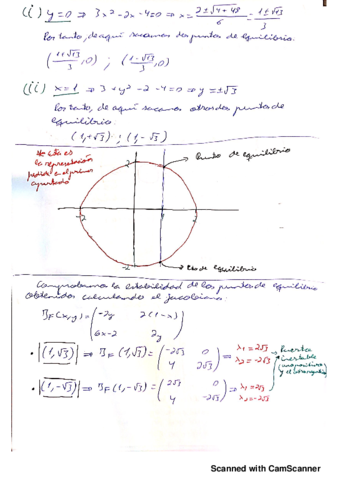 (i) y=0 ⇒ 3x²-2x-4=0 ⇒ x = 2±√4+48 / 6 = 1±√13 / 3
Por tanto, de aquí sacamos dos puntos de equilibrio.
(1+√13 / 3, 0) ; (1-√13 / 3, 0)
(ii) x=1 ⇒ 3+y²-2-4=0 ⇒ y=±√3
Por tanto, de aquí sacamos otros dos puntos de
equilibrio:
(1,+√3) ; (1,-√3)
es la representación
apartado
2
Punto de equilibrio
-2
2
-2
de equilibrio
Comprobamos la estabilidad de los puntos de equilibrio
obtenidos calculando el jacobiano:
J_F(x,y) = (-2y 2(1-x)
6x-2 2y)
• (1,√3) ⇒ J_F(1,√3) = (-2√3 0
4 2√3) ⇒ λ₁=2√3
λ₂=-2√3
Puntos
inestables
(uno positivo
y el otro negativo)
• (1,-√3) ⇒ J_F(1,-√3) = (2√3 0
4 -2√3) ⇒ λ₁=2√3
λ₂=-2√3
Scanned with CamScanner